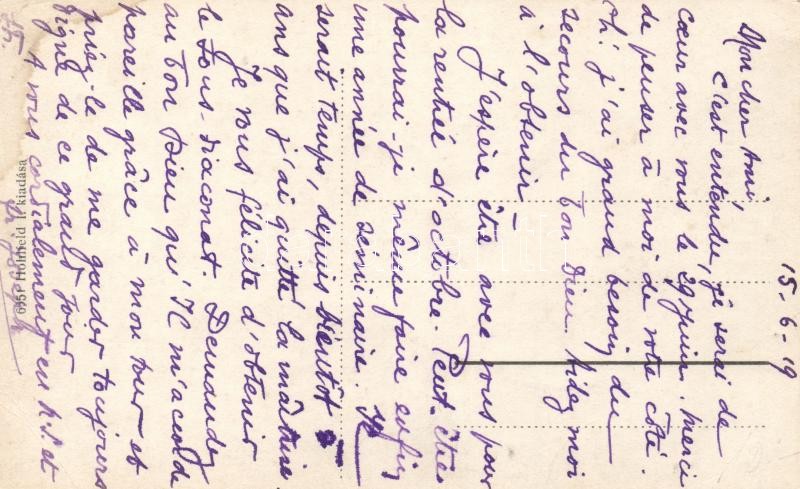 15-6-19
Mon cher Ami,
c'est entendu, je serai de
cœur avec vous le 29 juin. Merci
de penser à moi de votre côté.
j'ai grand besoin du
secours du bon Dieu. Aidez moi
à l'obtenir
J'espère être avec vous pour
la rentrée d'octobre. Peut-être
pourrai-je même faire enfin
une année de séminaire. Il
serait temps, depuis bientôt
ans que j'ai quitté la maîtrise
Je vous félicite d'obtenir
le sous-diaconat. Demandez
au bon Dieu qu'Il m'accorde
pareille grâce à mon tour et
priez-le de me garder toujours
digne de ce grand jour
A vous cordialement en N.S. et
Hohlfeld I. kiadása